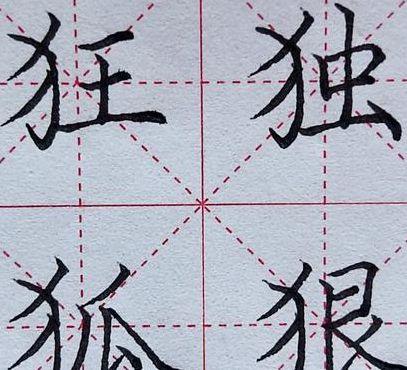 狂独
狐狠